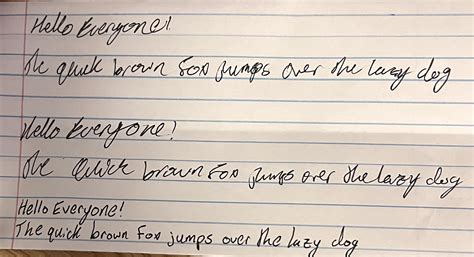 Hello Everyone!
The quick brown Fox jumps over the lazy dog
Hello Everyone!
The Quick brown Fox jumps over the lazy dog
Hello Everyone!
The quick brown Fox jumps over the lazy dog